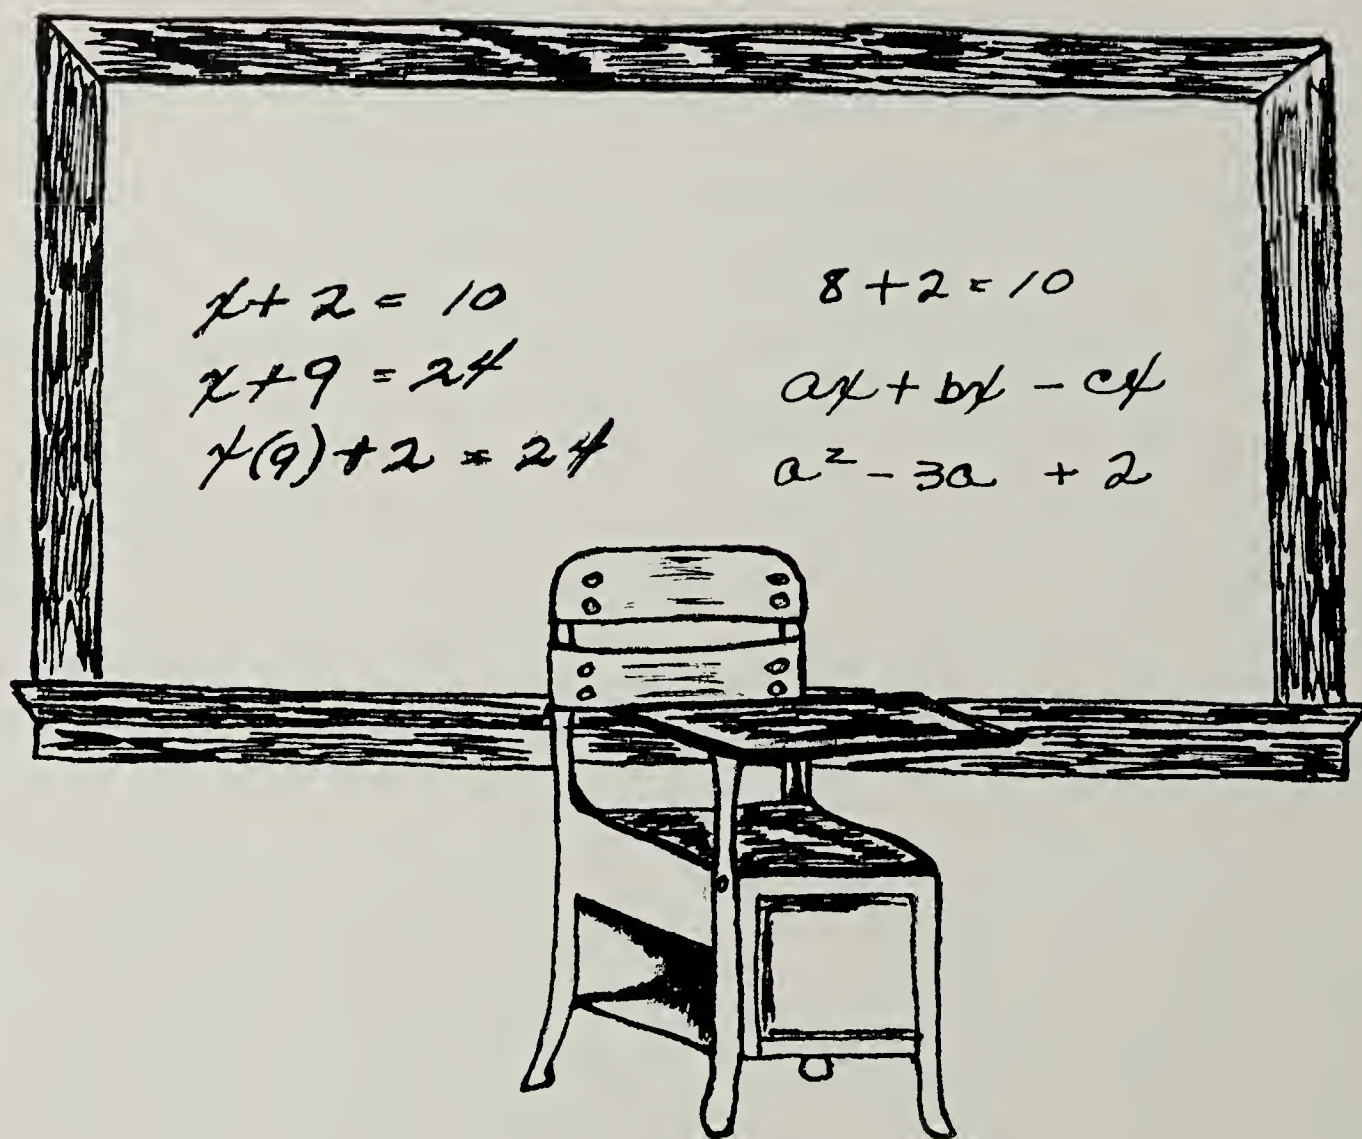 x + 2 = 10
x + 9 = 24
x(9) + 2 = 24
8 + 2 = 10
ax + bx - cx
a² - 3a + 2